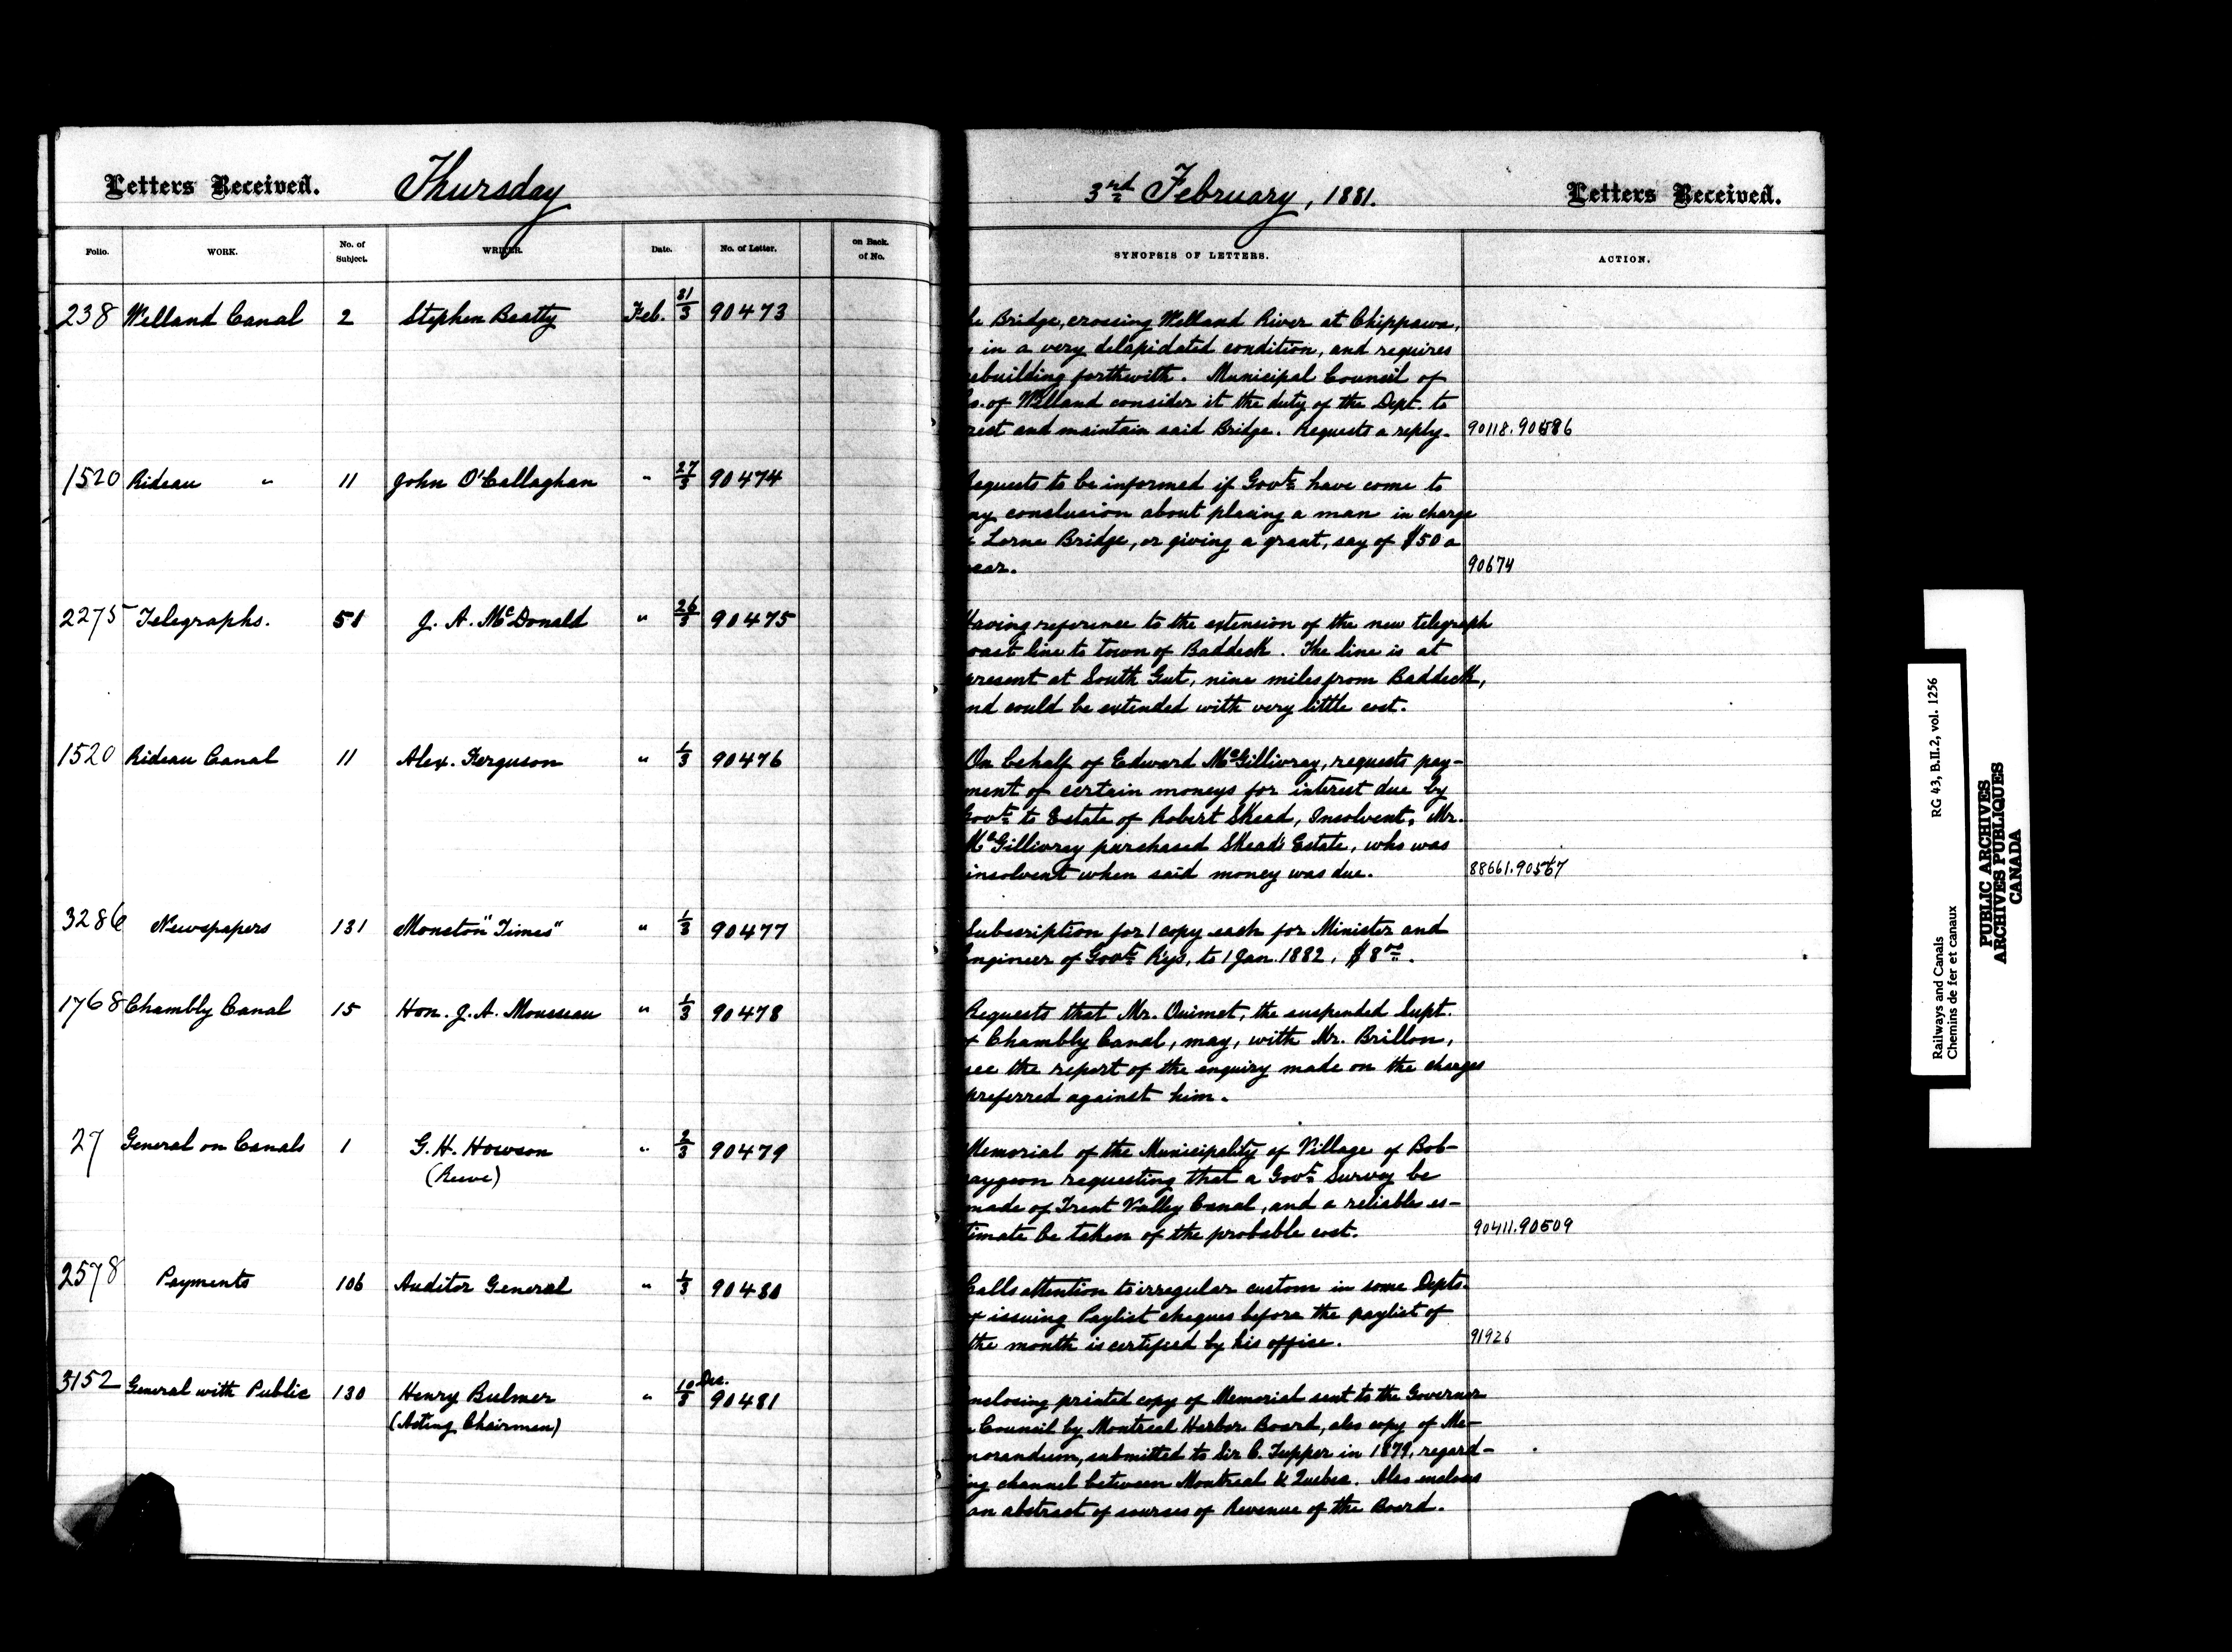 Letters Received. Thursday
3rd February, 1881. Letters Received.
Folio. WORK. No. of Subject. WRITER. Date. No. of Letter. on Back. of No.
SYNOPSIS OF LETTERS. ACTION.
238 Welland Canal 2 Stephen Beatty Feb. 31/3 90473
he Bridge, crossing Welland River at Chippawa,
s in a very delapidated condition, and requires
ebuilding forthwith. Municipal Council of
o. of Welland consider it the duty of the Dept. to
rect and maintain said Bridge. Requests a reply. 90118. 90586
1520 Rideau " 11 John O'Callaghan " 27/3 90474
Requests to be informed if Govt. have come to
ny conclusion about placing a man in charge
f Lorne Bridge, or giving a grant, say of $50 a
ear. 90674
2275 Telegraphs. 51 J. A. McDonald " 26/3 90475
Having reference to the extension of the new telegraph
oast line to town of Baddeck. The line is at
present at South Gut, nine miles from Baddeck,
nd could be extended with very little cost.
1520 Rideau Canal 11 Alex. Ferguson " 1/3 90476
On behalf of Edward McGillivray, requests pay-
ment of certain moneys for interest due by
Govt. to Estate of Robert Skead, Insolvent, Mr.
McGillivray purchased Skead's Estate, who was
insolvent when said money was due. 88661. 90567
3286 Newspapers 131 Moncton "Times" " 1/3 90477
Subscription for 1 copy each for Minister and
Engineer of Govt. Rys, to 1 Jan. 1882, $8.00.
1768 Chambly Canal 15 Hon. J. A. Mousseau " 1/3 90478
Requests that Mr. Ouimet, the suspended Supt.
of Chambly Canal, may, with Mr. Brillon,
see the report of the enquiry made on the charges
preferred against him.
27 General on Canals 1 G. H. Howson " 2/3 90479
(Reeve)
Memorial of the Municipality of Village of Bob-
caygeon requesting that a Govt. Survey be
made of Trent Valley Canal, and a reliable es-
timate be taken of the probable cost. 90411. 90509
2578 Payments 106 Auditor General " 1/3 90480
Calls attention to irregular custom in some Depts.
of issuing Paylist cheques before the paylist of
the month is certified by his office. 91926
3152 General with Public 130 Henry Bulmer " 10/3 Dec. 90481
(Acting Chairman)
nclosing printed copy of Memorial sent to the Governor
n Council by Montreal Harbor Board, also copy of Me-
morandum, submitted to Sir C. Tupper in 1879, regard-
ing channel between Montreal & Quebec. Also encloses
an abstract of sources of Revenue of the Board.
Railways and Canals RG 43, B.II.2, vol. 1256
Chemins de fer et canaux
PUBLIC ARCHIVES
ARCHIVES PUBLIQUES
CANADA